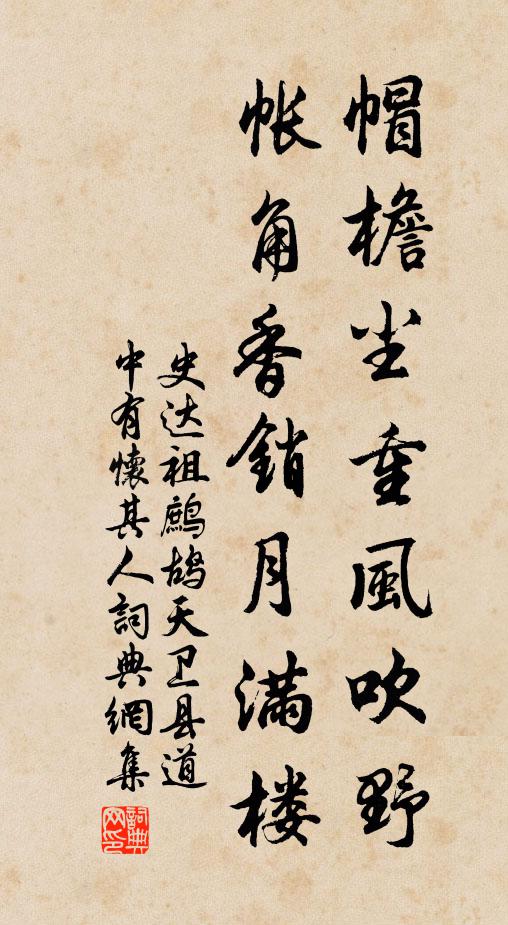 帽檐尘重風吹野
帐角香銷月满楼
史达祖鹧鸪天卫县道
中有懷其人詞典網集
詞典网印